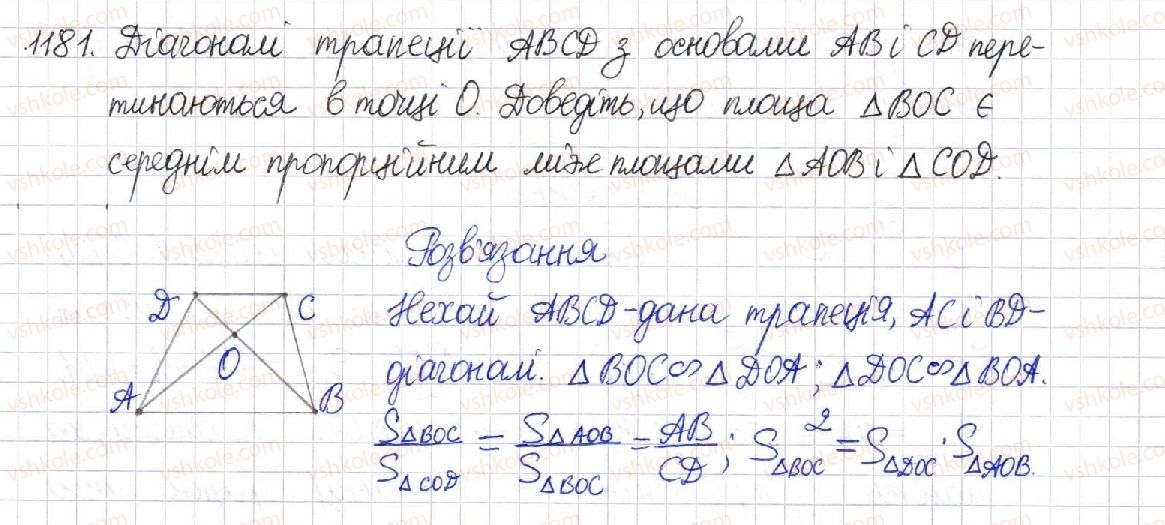 1181. Діагоналі трапеції ABCD з основами AB і CD пере-
тинаються в точці O. Доведіть, що площа △BOC є
середнім пропорційним між площами △AOB і △COD.
Розв'язання
D C
O
A B
Нехай ABCD - дана трапеція, AC і BD -
діагоналі. △BOC ∽ △DOA; △DOC ∽ △BOA.
S△BOC / S△COD = S△AOB / S△BOC = AB / CD; S△BOC² = S△DOC · S△AOB.